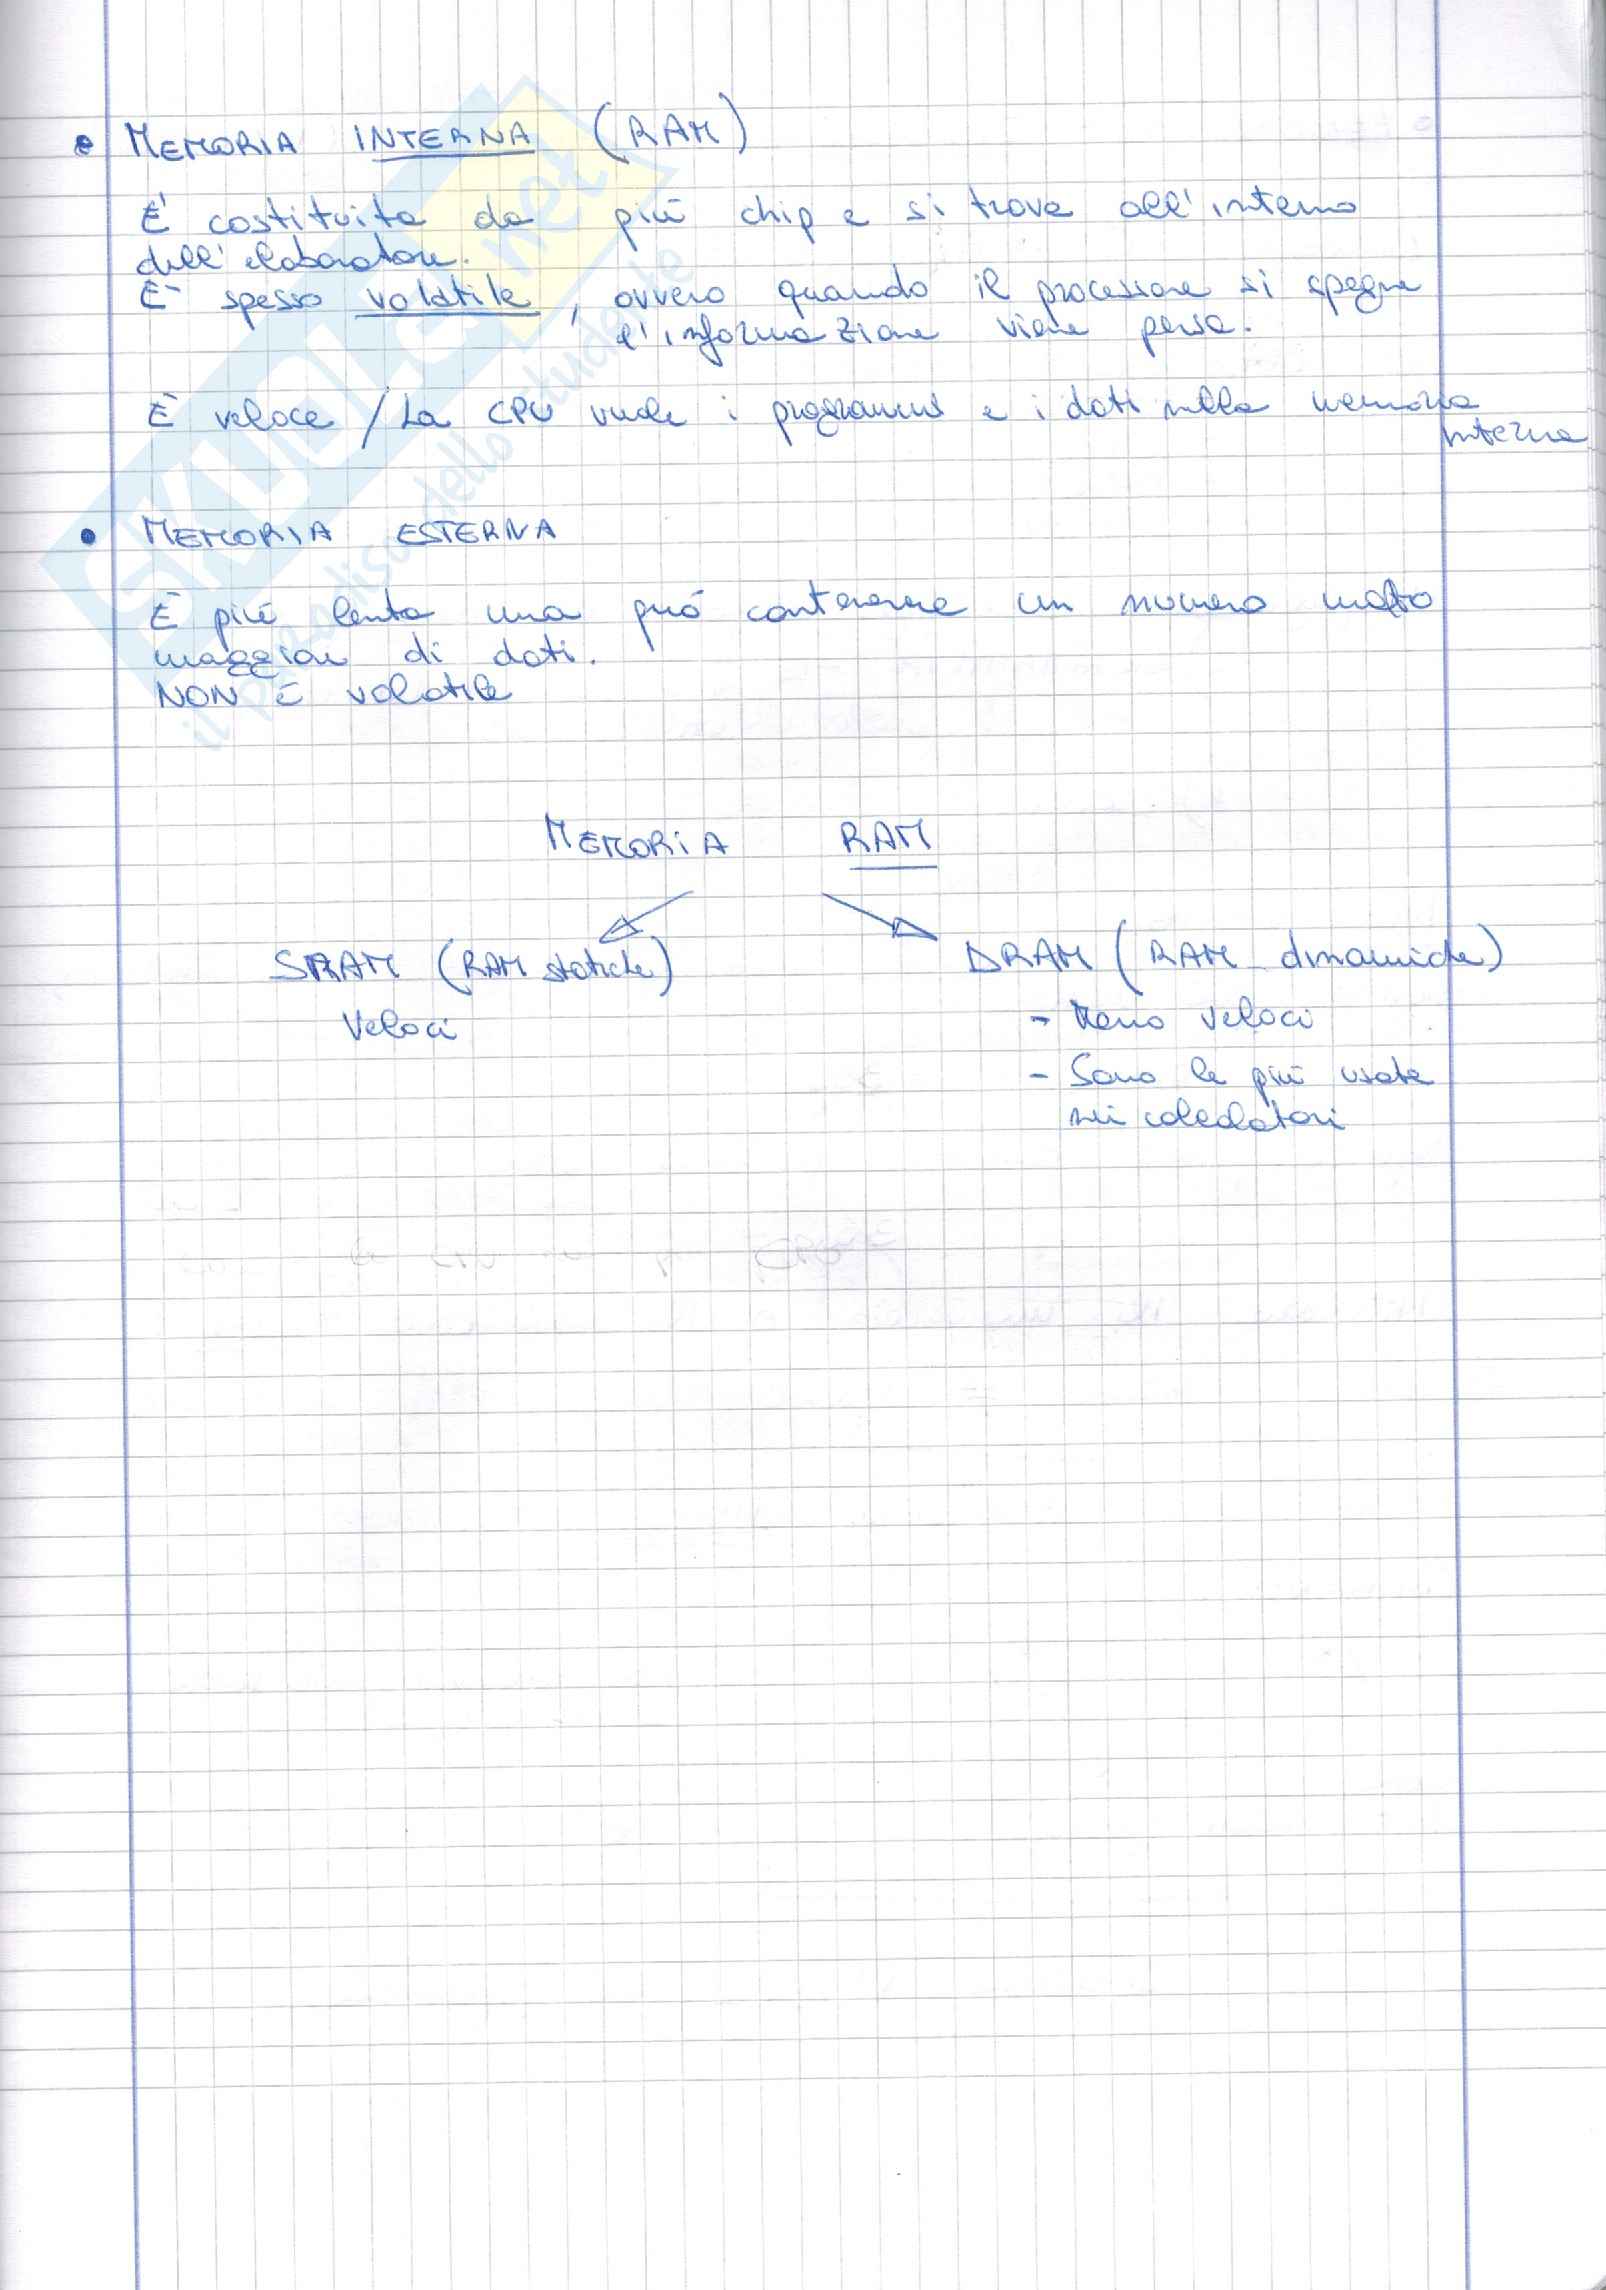 • MEMORIA INTERNA (RAM)
E' costituita da più chip e si trova all'interno
dell'elaboratore.
E' spesso volatile, ovvero quando il processore si spegne
l'informazione viene persa.
È veloce / La CPU vuole i programmi e i dati nella memoria
interna
• MEMORIA ESTERNA
È più lenta ma può contenere un numero molto
maggiore di dati.
NON È volatile
MEMORIA RAM
SRAM (RAM statiche)
Veloci
DRAM (RAM dinamiche)
- Meno veloci
- Sono le più usate
nei calcolatori
SKUOLA.net
il paradiso dello studente